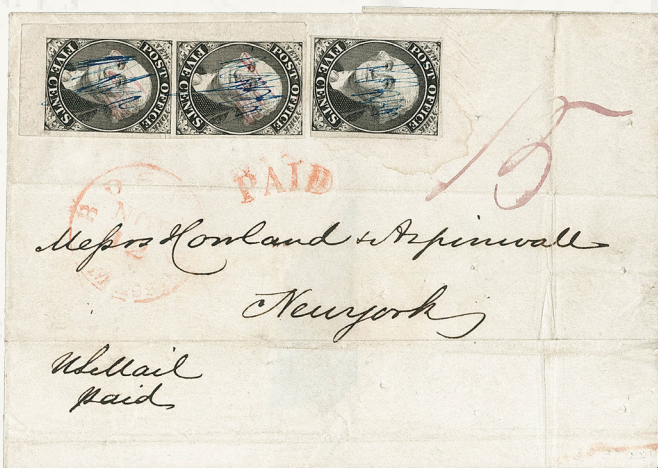 POST OFFICE
FIVE CENTS
POST OFFICE
FIVE CENTS
POST OFFICE
FIVE CENTS
15
PAID
Messrs Howland & Aspinwall
Newyork
U S Mail
paid